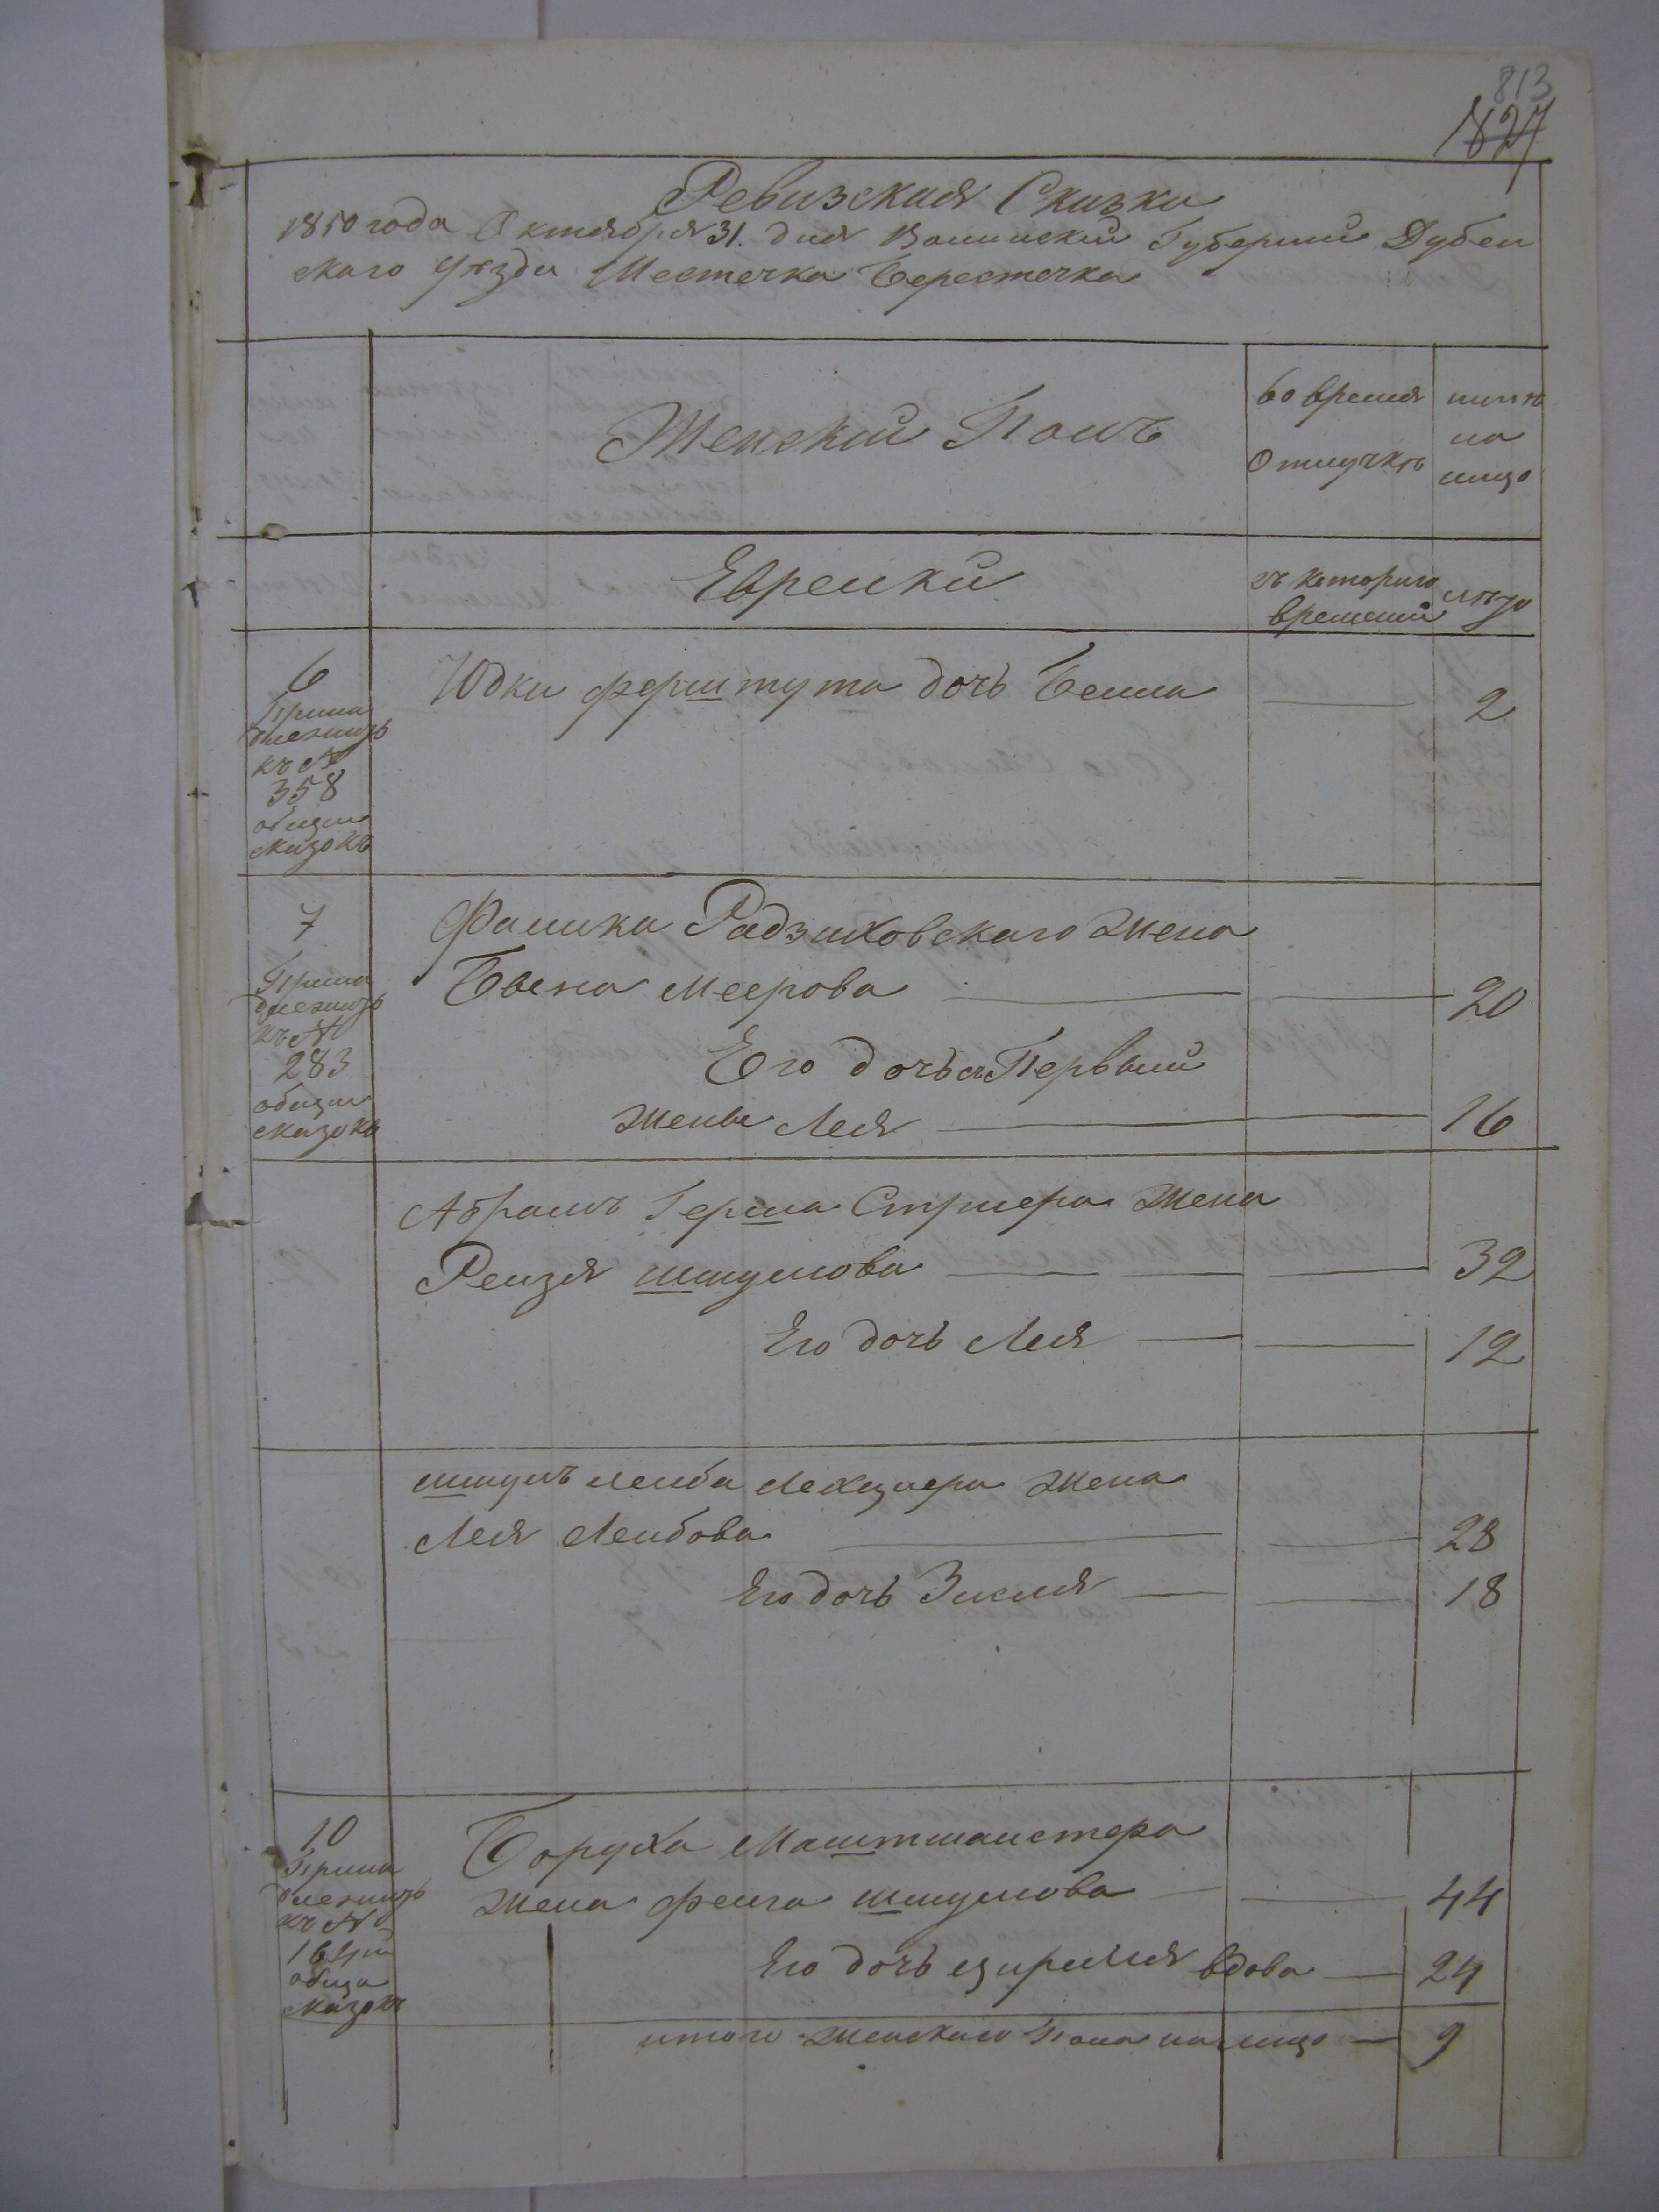 813
827
Ревизская Сказка
1850 года Октября 31. дня Волинский Губернии Дубен
скаго уѣзда Местечка Берестечка
Женский Полъ
во время
Отлучкѣ
ныне
на
лицо
Еврейки
съ котораго
времени
лѣта
6
Прина
длежитъ
къ №
358
общих
сказокъ
Юдки Ферштута дочь Бейла
2
7
Прина
длежитъ
къ №
283
общих
сказокъ
Радзиховскаго Жена
Меерова
20
Его дочь съ Первый
жены Лея
16
Абрамъ Герша Стриера Жена
Рейзя Шмулова
32
Его дочь Лея
12
Шмуль Лейба Жена
Лея Лейбова
28
Его дочь Зисля
18
10
Прина
длежитъ
къ №
общи
сказокъ
Боруха Маштмаистера
Жена Фейга Шмулова
44
Его дочь вдова
24
итого Женскаго Пола на лицо
9